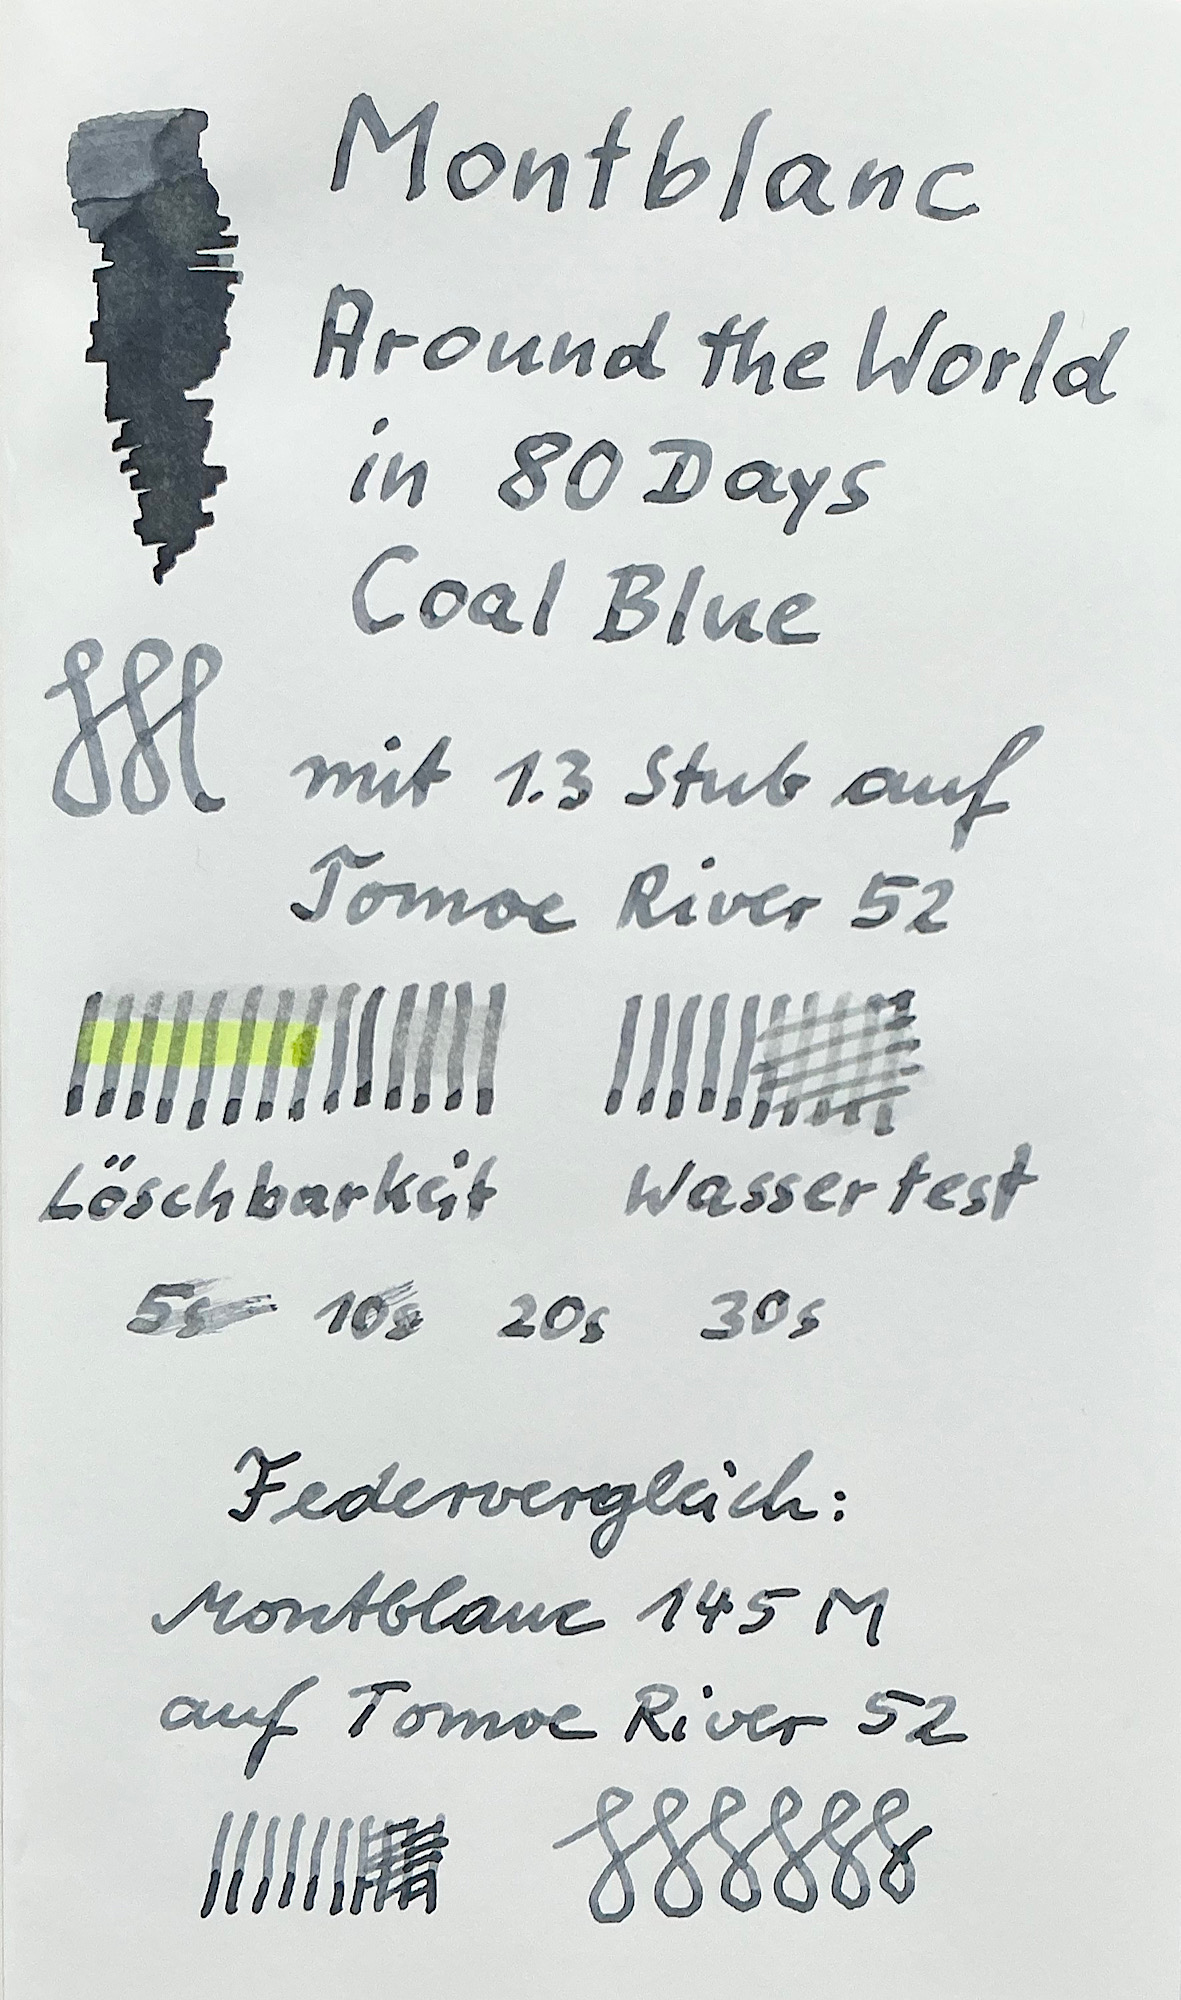 Montblanc
Around the World
in 80 Days
Coal Blue
mit 1.3 Stub auf
Tomoe River 52
Löschbarkeit Wassertest
5s 10s 20s 30s
Federvergleich:
Montblanc 145 M
auf Tomoe River 52